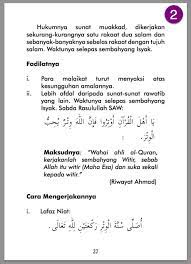 2
Hukumnya sunat muakkad, dikerjakan
sekurang-kurangnya satu rakaat dua salam dan
sebanyak-banyaknya sebelas rakaat dengan tujuh
salam. Waktunya selepas sembahyang Isyak.
Fadilatnya
i. Para malaikat turut menyaksi atas
kesungguhan amalannya.
ii. Lebih afdal daripada sunat-sunat rawatib
yang lain. Waktunya selepas sembahyang
Isyak. Sabda Rasulullah SAW:
يَا أَهْلَ الْقُرْآنِ أَوْتِرُوا فَإِنَّ اللَّهَ وِتْرٌ يُحِبُّ
الْوِتْرَ.
Maksudnya: "Wahai ahli al-Quran,
kerjakanlah sembahyang Witir, sebab
Allah itu witir (Maha Esa) dan suka sekali
kepada witir."
(Riwayat Ahmad)
Cara Mengerjakannya
i. Lafaz Niat:
أُصَلِّى سُنَّةَ الْوِتْرِ رَكْعَتَيْنِ لِلَّهِ تَعَالَى.
27